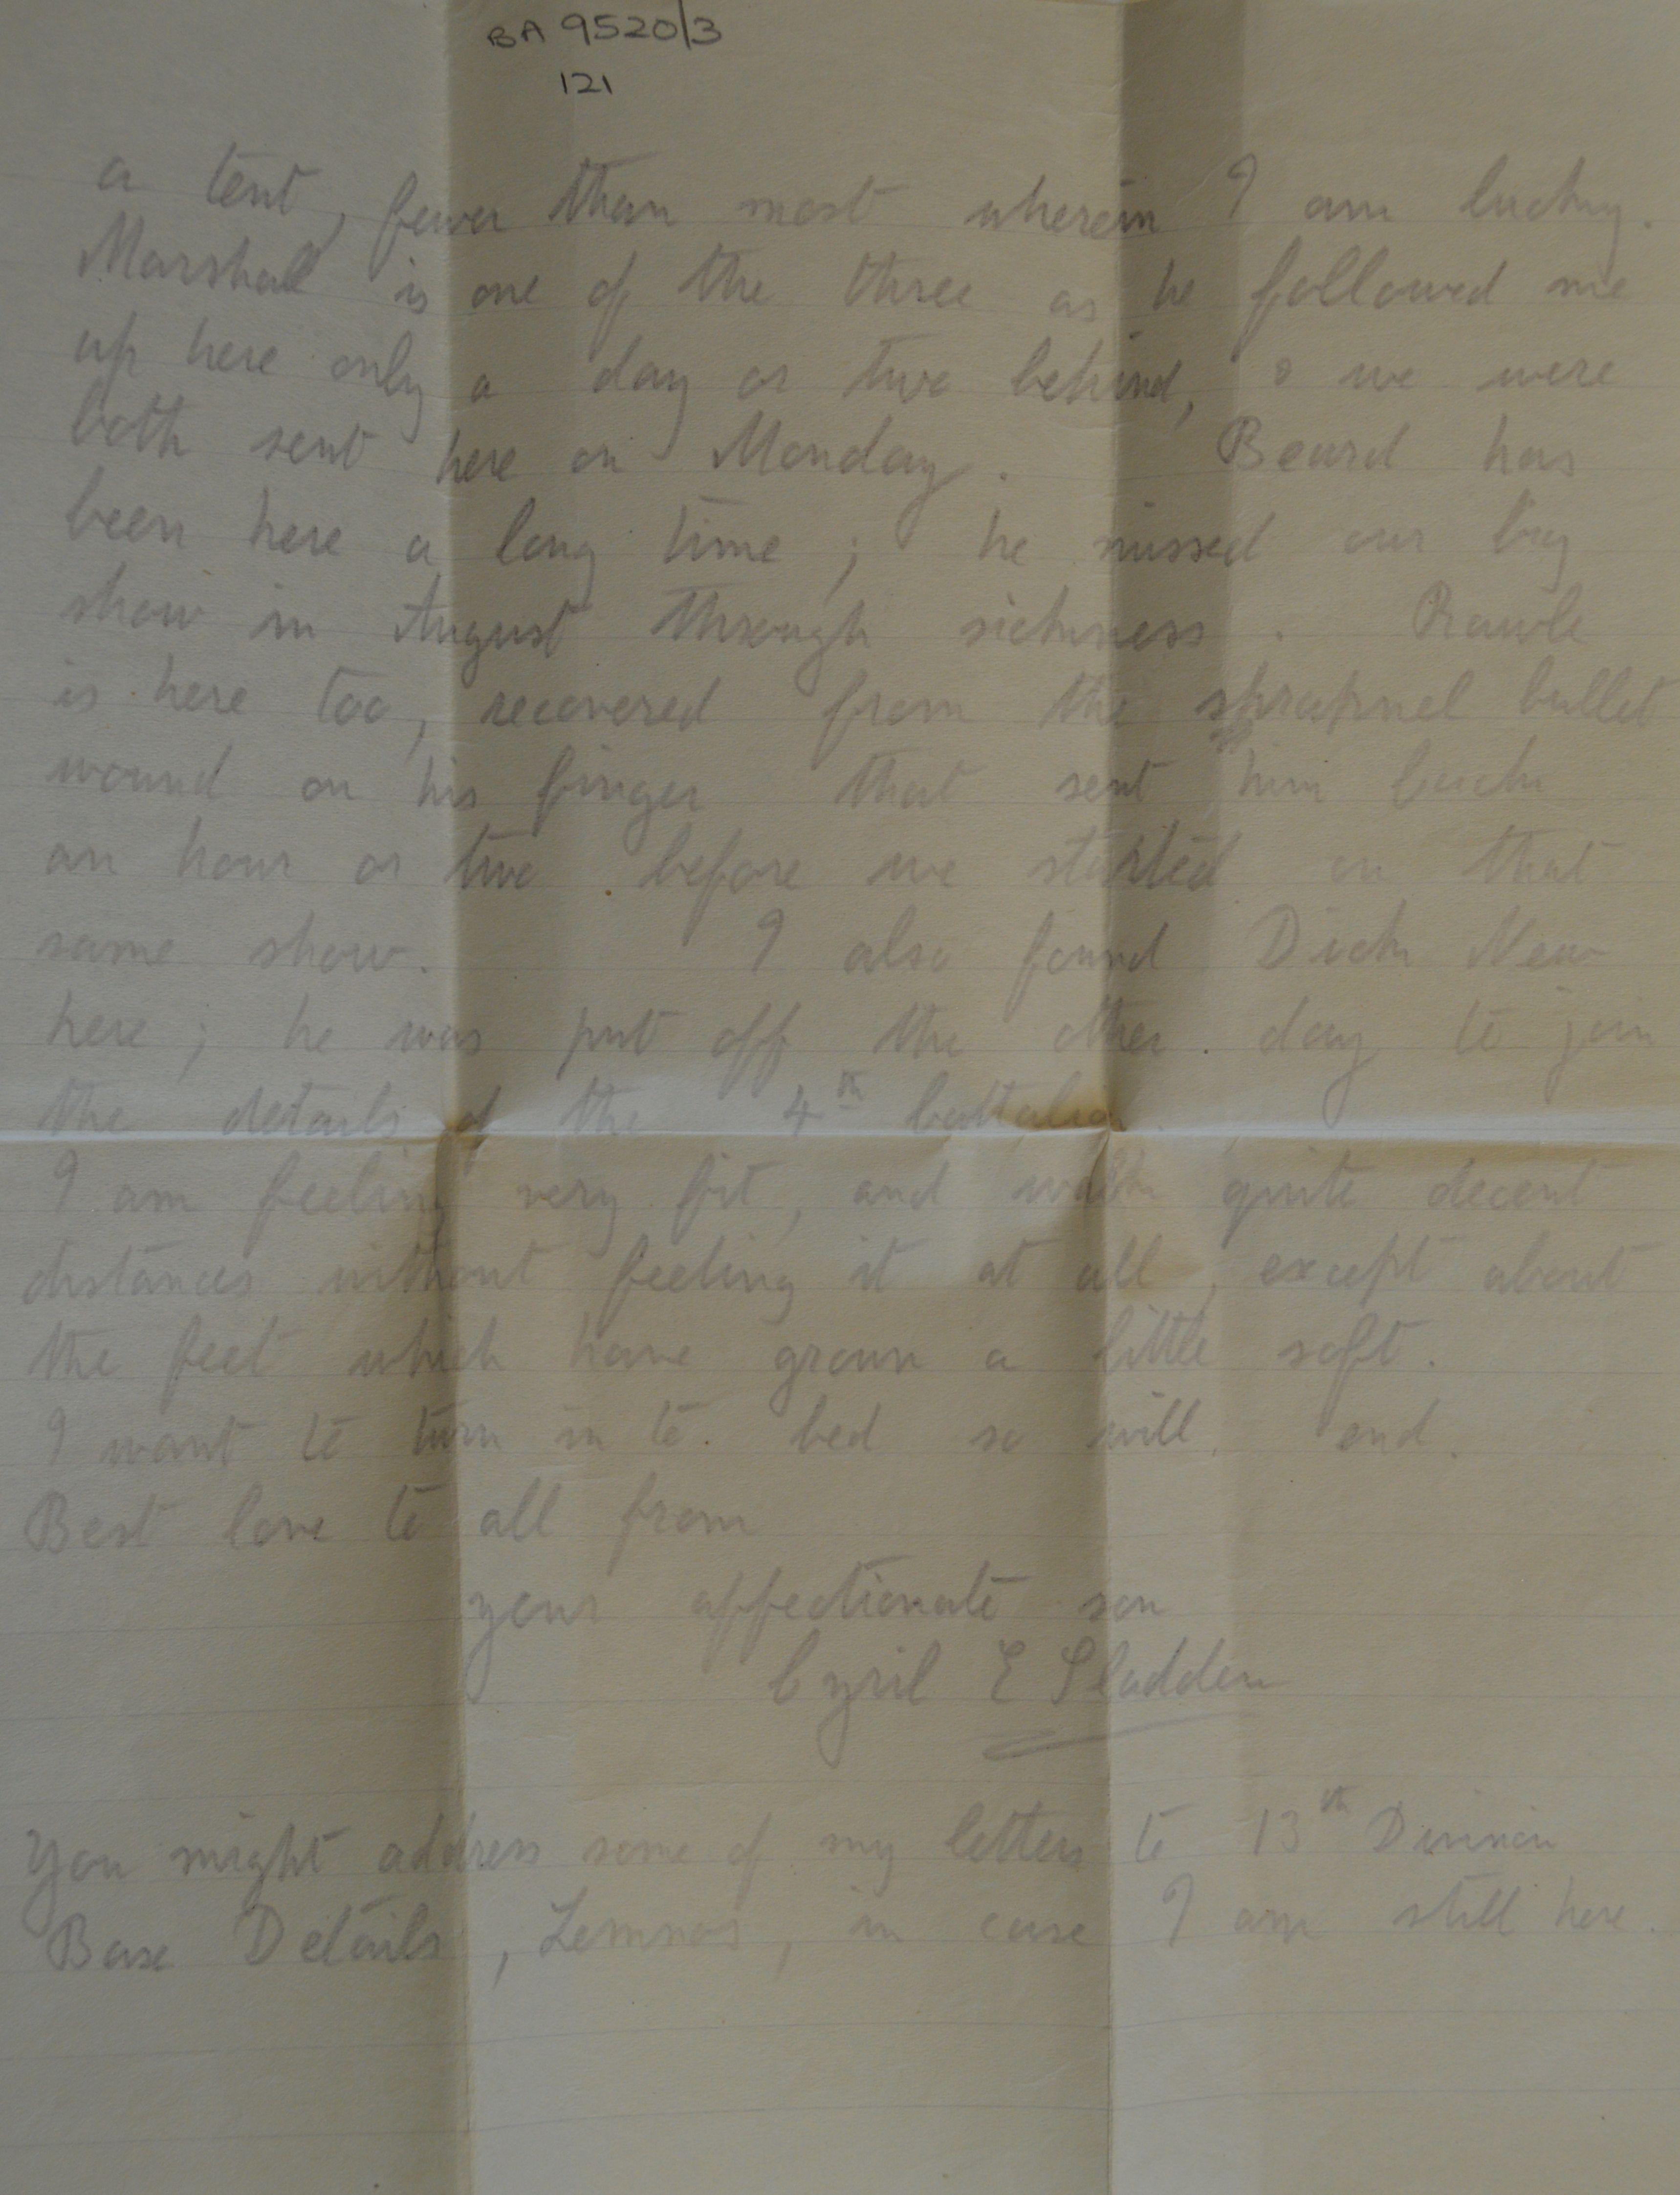 BA 9520/3
121
a tent, fewer than most wherein I am lucky.
Marshall is one of the three as he followed me
up here only a day or two behind, & we were
both sent here on Monday. Beard has
been here a long time; he missed our big
show in August through sickness. Rawle
is here too, recovered from the shrapnel bullet
wound on his finger that sent him back
an hour or two before we started on that
same show. I also found Dick New
here; he was put off the other day to join
the details of the 4th battalion.
I am feeling very fit, and walk quite decent
distances without feeling it at all, except about
the feet which have grown a little soft.
I want to turn in to bed so will end.
Best love to all from
your affectionate son
Cyril E Sladden
You might address some of my letters to 13th Division
Base Details, Lemnos, in case I am still here.